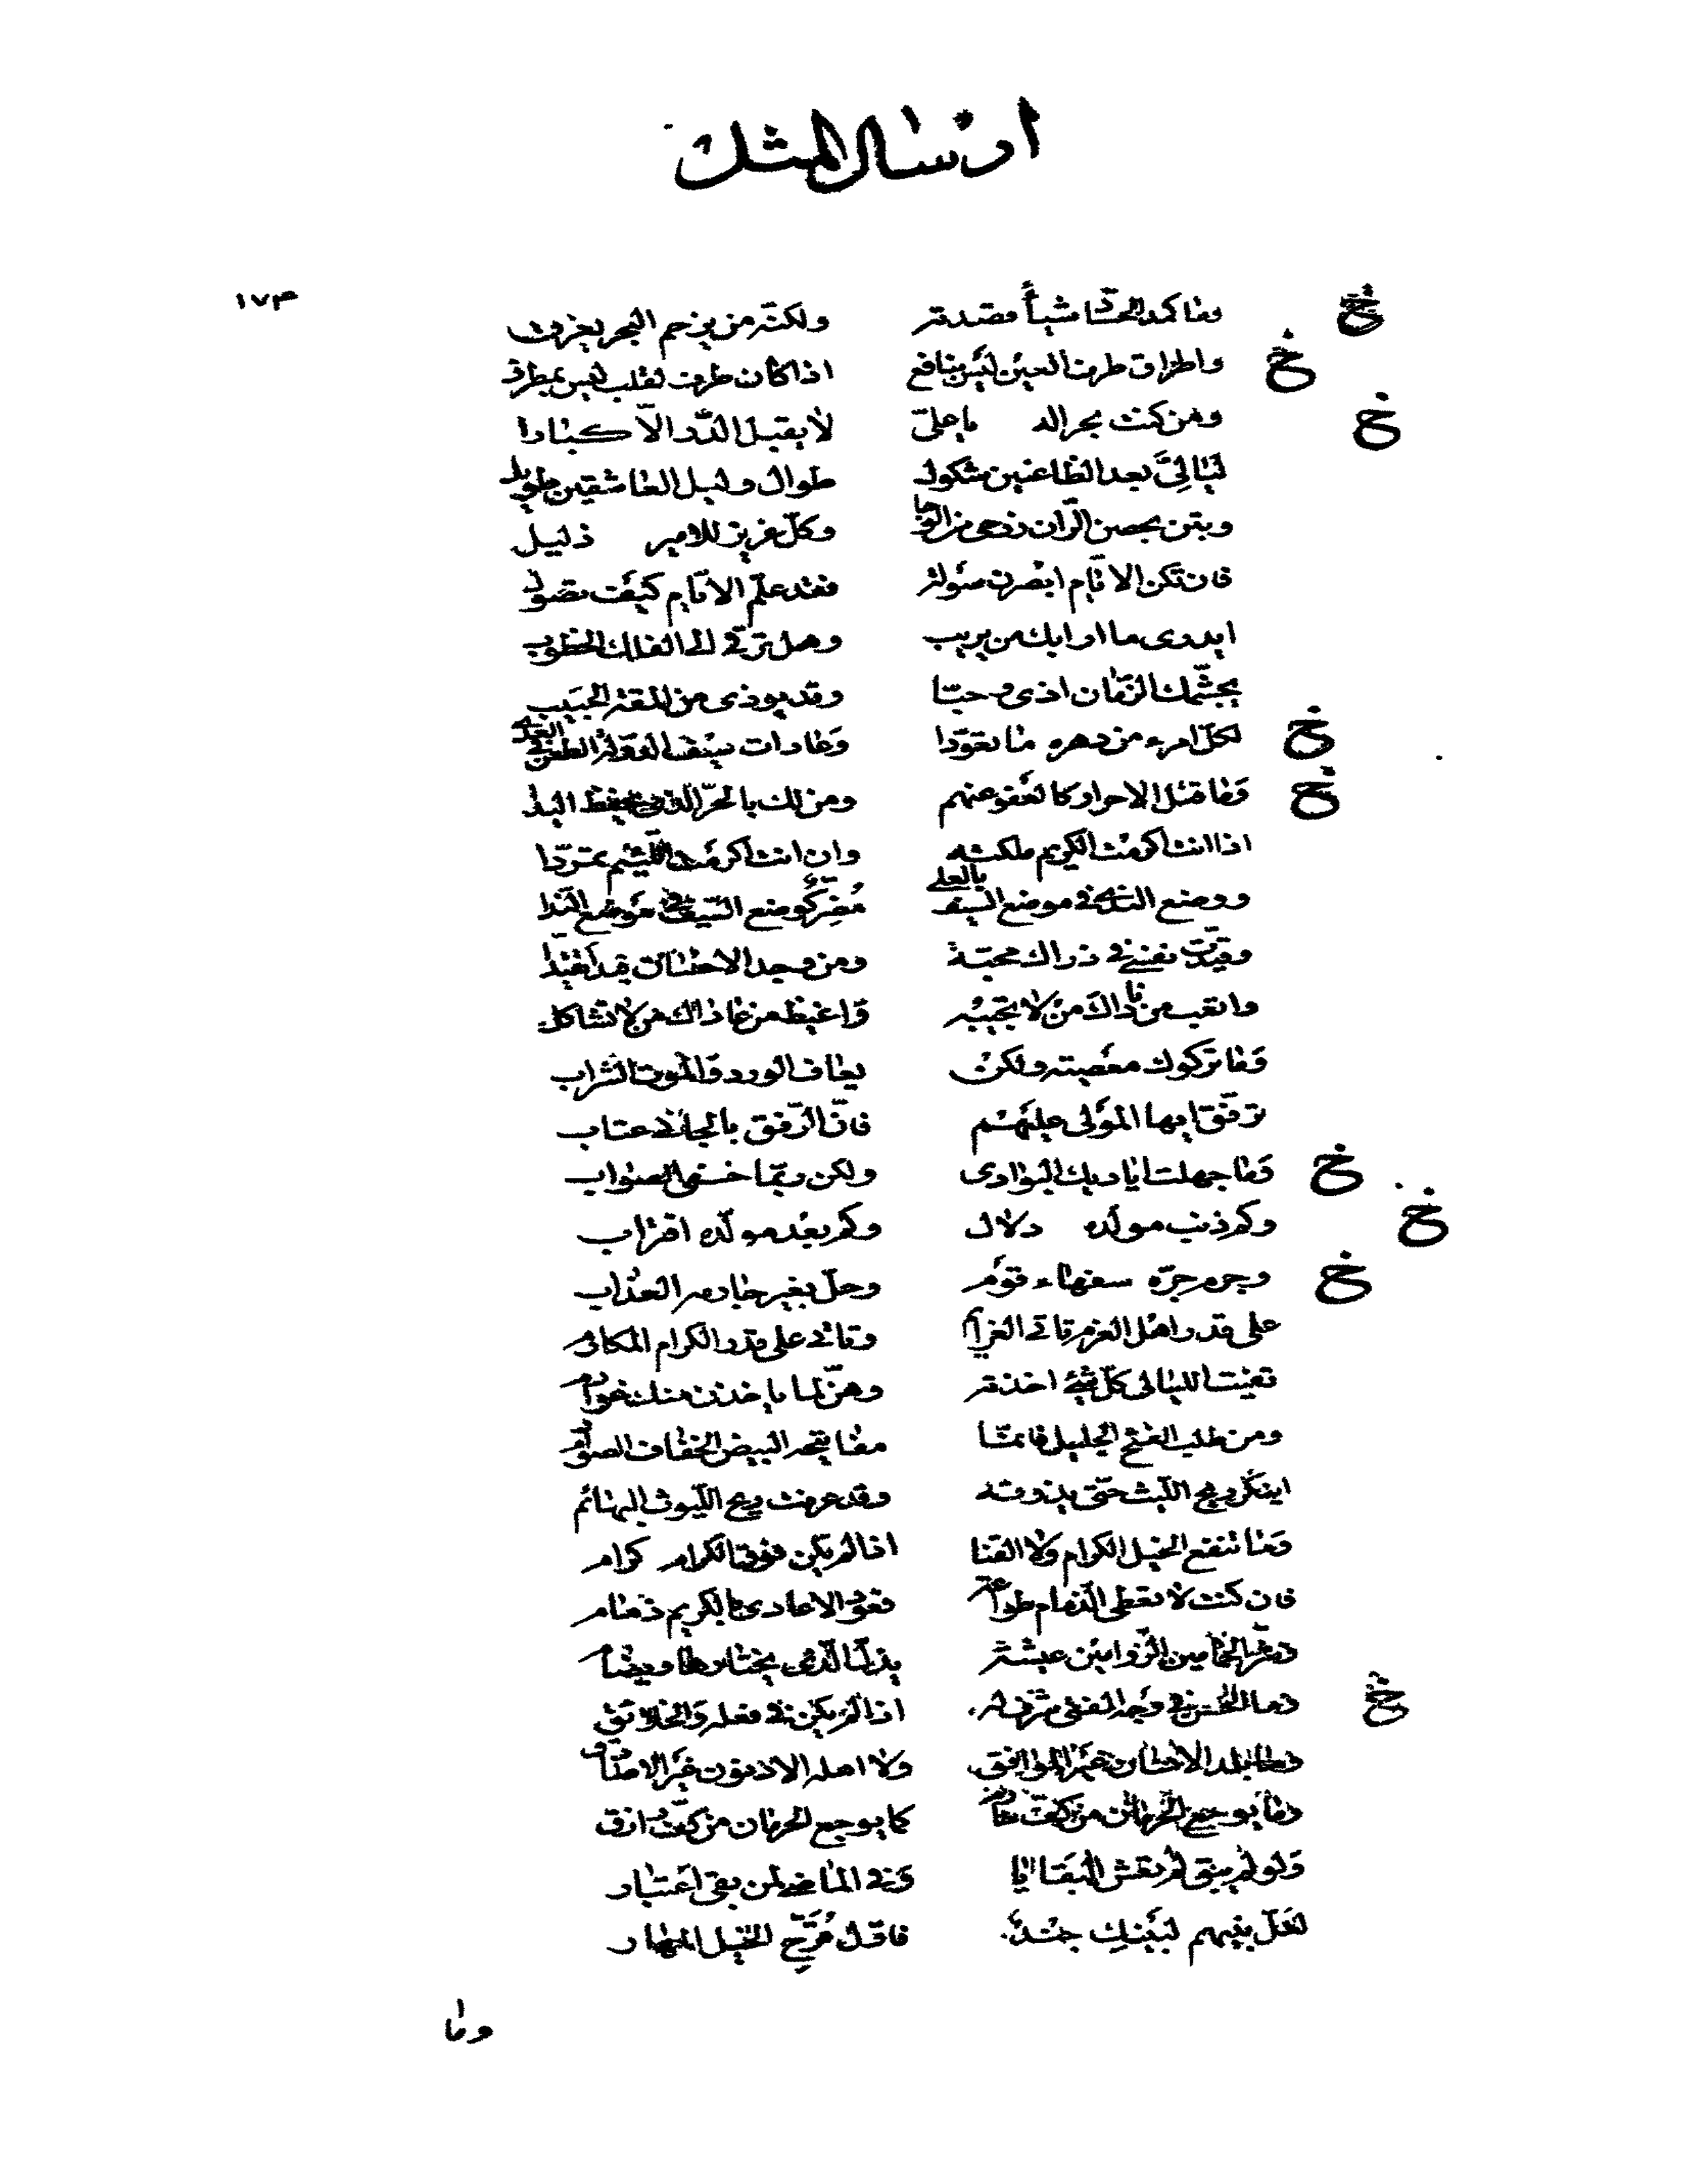 ارسال المثل
١٧٣
وما كمد الحسّاد شيأً قصدته ولكنّه من يزحم البحر يغرق
واطراق طرف العين ليس بنافع اذا كان طرف لقلب ليس بمطرق
ومن كنت بحراله ياعليّ لا يقبل الدّر الّا كبارا
ليالىّ بعد الظاعنين شكول طوال وليل العاشقين طويل
وبتن بحصن الرّان رزحى من الوجا وكلّ عزيز للامير ذليل
فان تكن الايّام ابصرن صوله فقد علّم الايّام كيف تصول
ايدرى ما ارابك من يريب وهل ترقى الى الفلك الخطوب
يجشّمك الزّمان اذى وحبّا وقد يوذى من المقة الحبيب
لكلّ امرء من دهره ما تعوّدا وعادات سيف الدولة الطعن فى العدى
وما قتل الاحرار كالعفو عنهم ومن لك بالحرّ الذى يحفظ اليدا
اذا انت اكرمت الكريم ملكته وان انت اكرمت اللّئيم تمرّدا
ووضع الندى فى موضع السيف بالعلى مُضِرّ كوضع السّيف فى موضع النّدا
وقيّدت نفسى فى ذراك محبّة ومن وجد الاحسان قيداً تقيّدا
واتعب من ناداك من لا تجيبه واغيظ من عاداك من لا تشاكل
وما تركوك معصيته ولكن يعاف الورد والموت الشراب
ترفّق ايها المولى عليهم فانّ الرّفق بالجانى عتاب
وما جهلت اياديك البوادى ولكن ربّما خفى الصواب
وكم ذنب مولّده دلال وكم بعد مولّده اقتراب
وجرم جرّه سفهاء قوم وحلّ بغير جارمه العذاب
على قدر اهل العزم تاتى العزايم وتاتى على قدر الكرام المكارم
تفيت الليالى كلّ شئ اخذته وهنّ لما ياخذن منك غوارم
ومن طلب الفتح الجليل فانمّا مفاتيحه البيض الخفاف الصوارم
اينكر ريح الليث حتّى يذوقه وقد عرفت ريح الليوث البهائم
وما تنفع الخيل الكرام ولا القنا اذا لم يكن فوق الكرام كرام
فان كنت لا تعطى الذمام طواعة فعوذ الاعادى بالكريم ذمام
وشرّ الحمامين الزوامين عيشة يذلّ الّذى يختارها ويضام
وما الحسن فى وجه الفتى شرف له اذا لم يكن فى فعله والخلائق
وما بلد الانسان غير الموافق ولا اهله الادنون غير الاصادق
وما يوجع الحرمان من كفّ حارم كما يوجع الحرمان من كفّ رازق
ولو لم يبق لم تعش البقايا وفى الماضى لمن بقى اعتبار
لعلّ بنيهم لبنيك جند فاوّل قُرّح الخيل المهار
وما